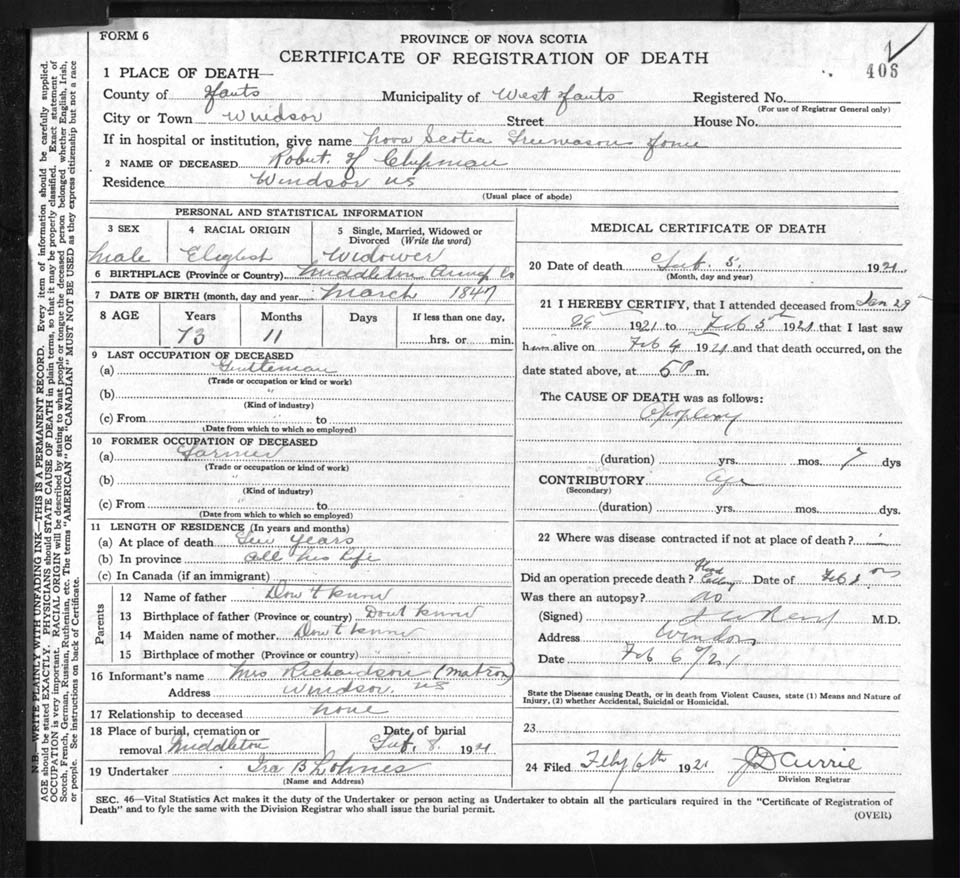 FORM 6
PROVINCE OF NOVA SCOTIA
CERTIFICATE OF REGISTRATION OF DEATH
406
1 PLACE OF DEATH—
County of Hants Municipality of West Hants Registered No.
(For use of Registrar General only)
City or Town Windsor Street House No.
If in hospital or institution, give name Nova Scotia Freemasons Home
2 NAME OF DECEASED Robert. H Chipman
Residence Windsor NS
(Usual place of abode)
PERSONAL AND STATISTICAL INFORMATION
3 SEX 4 RACIAL ORIGIN 5 Single, Married, Widowed or Divorced (Write the word)
Male English Widower
6 BIRTHPLACE (Province or Country) Middleton Annap Co
7 DATE OF BIRTH (month, day and year March 1847
8 AGE Years Months Days If less than one day,
73 11 hrs. or min.
9 LAST OCCUPATION OF DECEASED
(a) Gentleman
(Trade or occupation or kind or work)
(b) "
(Kind of industry)
(c) From to
(Date from which to which so employed)
10 FORMER OCCUPATION OF DECEASED
(a) Farmer
(Trade or occupation or kind of work)
(b) "
(Kind of industry)
(c) From to
(Date from which to which so employed)
11 LENGTH OF RESIDENCE (In years and months)
(a) At place of death years
(b) In province all his life
(c) In Canada (if an immigrant)
Parents
12 Name of father Don't know
13 Birthplace of father (Province or country) Don't know
14 Maiden name of mother Don't know
15 Birthplace of mother (Province or country)
16 Informant's name Mrs Richardson (Matron)
Address Windsor. NS
17 Relationship to deceased none
18 Place of burial, cremation or removal Middleton
Date of burial Feb. 8. 1921
19 Undertaker Ira B Lohnes
(Name and Address)
MEDICAL CERTIFICATE OF DEATH
20 Date of death Feb 5. 1921
(Month, day and year)
21 I HEREBY CERTIFY, that I attended deceased from Jan 29
29 1921 to Feb 5th 1921 that I last saw
h alive on Feb 4 1921 and that death occurred, on the
date stated above, at 5 P m.
The CAUSE OF DEATH was as follows:
Apoplexy
(duration) yrs. mos. 7 dys
CONTRIBUTORY Age
(Secondary)
(duration) yrs. mos. dys.
22 Where was disease contracted if not at place of death?
Did an operation precede death? Date of Feb
Was there an autopsy? no
(Signed) M.D.
Address Windsor
Date Feb 6 /21
State the Disease causing Death, or in death from Violent Causes, state (1) Means and Nature of
Injury, (2) whether Accidental, Suicidal or Homicidal.
23
24 Filed Feby 6th 1921 J D Currie
Division Registrar
SEC. 46—Vital Statistics Act makes it the duty of the Undertaker or person acting as Undertaker to obtain all the particulars required in the "Certificate of Registration of
Death" and to fyle the same with the Division Registrar who shall issue the burial permit.
(OVER)
N.B.—WRITE PLAINLY WITH UNFADING INK—THIS IS A PERMANENT RECORD. Every item of information should be carefully supplied.
AGE should be stated EXACTLY. PHYSICIANS should STATE CAUSE OF DEATH in plain terms, so that it may be properly classified. Exact statement of
OCCUPATION is very important. RACIAL ORIGIN will be described by stating to what people or tongue the deceased person belonged, whether English, Irish,
Scotch, French, German, Russian, Ruthenian, etc. The terms "AMERICAN" OR "CANADIAN" MUST NOT BE USED as they express citizenship but not a race
or people. See instructions on back of Certificate.